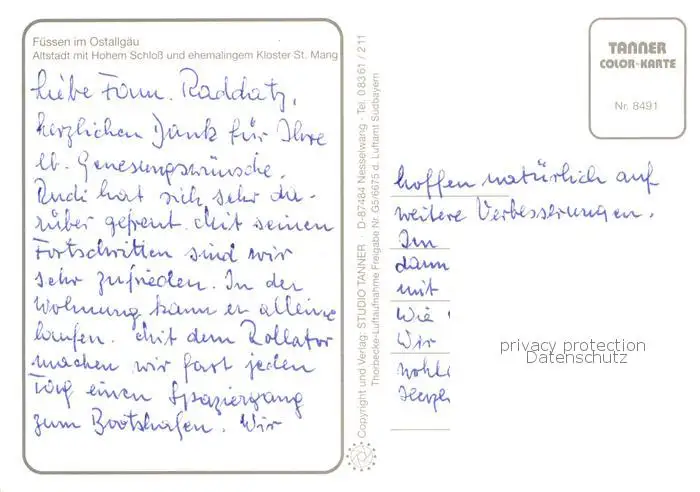 Füssen im Ostallgäu
Altstadt mit Hohem Schloß und ehemalingem Kloster St. Mang
Liebe Fam. Raddatz,
herzlichen Dank für Ihre
lb. Genesungswünsche.
Rudi hat sich sehr da-
rüber gefreut. Mit seinen
Fortschritten sind wir
sehr zufrieden. In der
Wohnung kann er alleine
laufen. Mit dem Rollator
machen wir fast jeden
Tag einen Spaziergang
zum Bootshafen. Wir
© Copyright und Verlag: STUDIO TANNER · D-87484 Nesselwang · Tel. 0 83 61 / 2 11
Thorbecke-Luftaufnahme Freigabe Nr. G5/6675 d. Luftamt Südbayern
TANNER
COLOR-KARTE
Nr. 8491
hoffen natürlich auf
weitere Verbesserungen.
Im
dann
mit
Wie
Wir
wohl
Herzl
privacy protection
Datenschutz